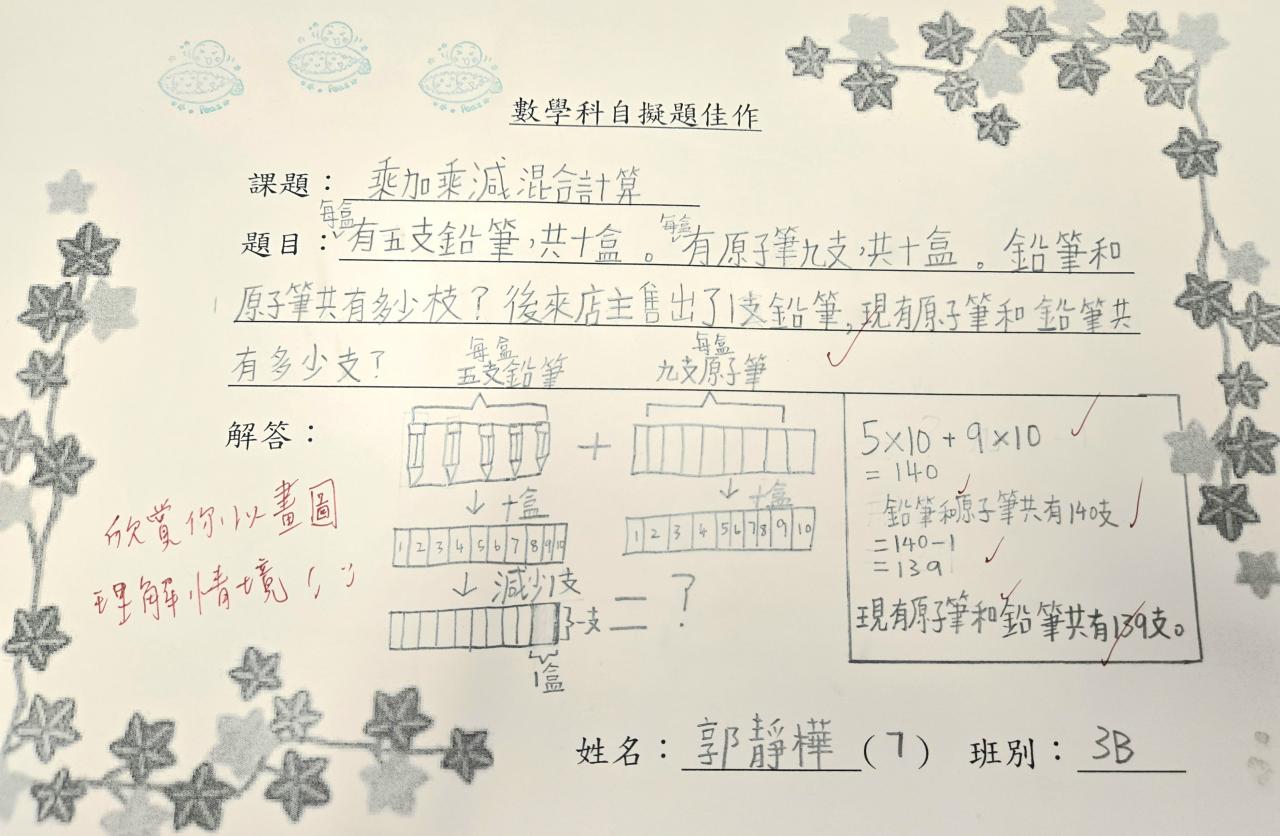 數學科自擬題佳作
課題：乘加乘減混合計算
每盒 每盒
題目：有五支鉛筆，共十盒。有原子筆九支，共十盒。鉛筆和
原子筆共有多少枝？後來店主售出了1支鉛筆，現有原子筆和鉛筆共
有多少支？
每盒 每盒
五支鉛筆 九支原子筆
解答：
+
↓十盒 ↓十盒
1 2 3 4 5 6 7 8 9 10
1 2 3 4 5 6 7 8 9 10
↓減少1支
一支 = ?
1盒
5×10+9×10
=140
鉛筆和原子筆共有140支
=140-1
=139
現有原子筆和鉛筆共有139支。
欣賞你以畫圖
理解情境！
姓名：郭靜樺（7） 班別：3B